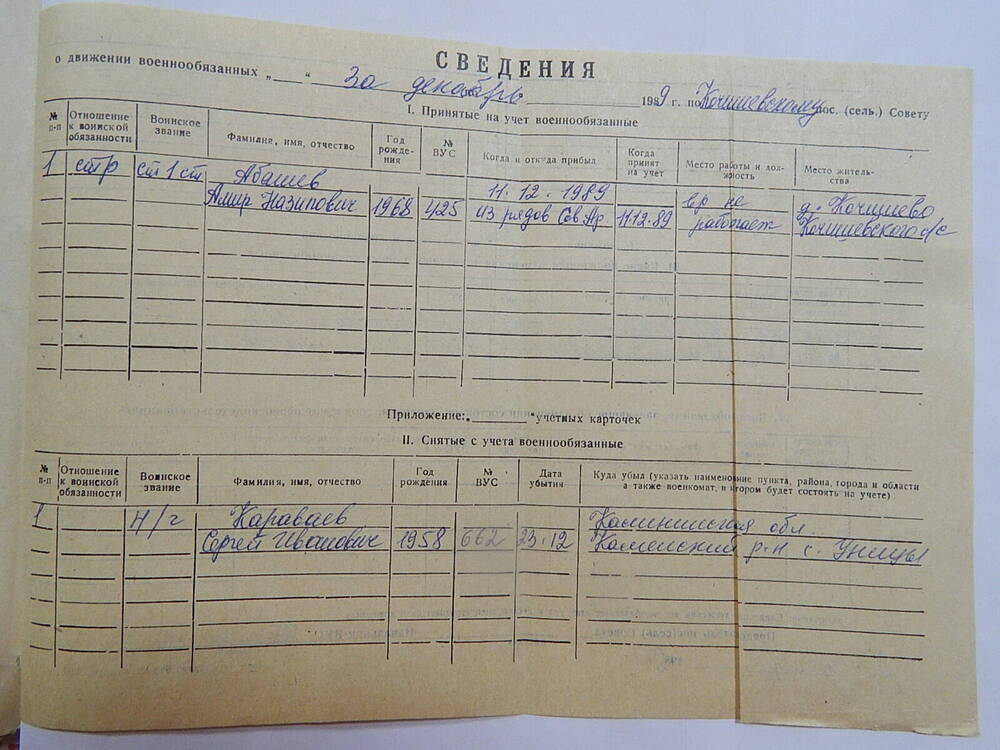 СВЕДЕНИЯ
о движении военнообязанных „___“ За декабрь 1989 г. по Кочишевскому пос. (сель.) Совету
I. Принятые на учет военнообязанные
№ п-п | Отношение к воинской обязанности | Воинское звание | Фамилия, имя, отчество | Год рождения | № ВУС | Когда и откуда прибыл | Когда принят на учет | Место работы и должность | Место жительства
1 | стр | ст 1 ст | Абашев | | | 11.12.1989 | | вр не | д. Кочишево
Амир Назипович | 1968 | 425 | из рядов Сов Ар | 11.12.89 | работает | Кочишевского с/с
Приложение: „___“ учетных карточек
II. Снятые с учета военнообязанные
№ п-п | Отношение к воинской обязанности | Воинское звание | Фамилия, имя, отчество | Год рождения | № ВУС | Дата убытия | Куда убыл (указать наименование пункта, района, города и области а также военкомат, в котором будет состоять на учете)
1 | | | Караваев | | | | обл.
Сергей Иванович | 1958 | 662 | 23.12 | Каменский р-н с.